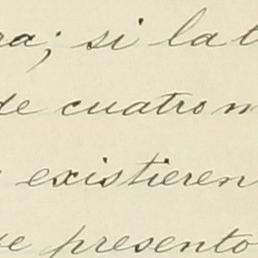 ra; si la t
de cuatro m
existieren
ue presento